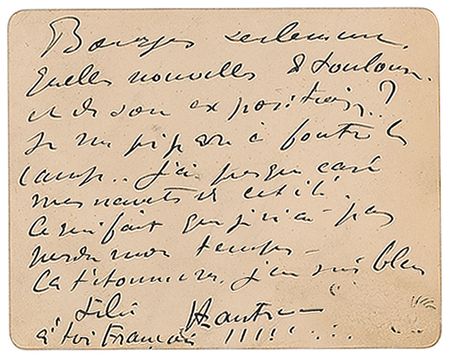 Bourges seulement.
Quelles nouvelles de Toulouse
et de son exposition..?
Je me prépare à foutre le
camp.. j'ai presque casé
mes navets de cet été.
Ce qui fait que je n'ai pas
perdu mon temps –
Ça t'étonnera, j'en suis bleu
à toi Français !!!!!.....